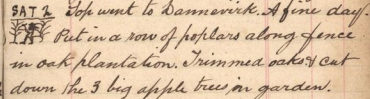 SAT 2 Pop went to Dannevirk. A fine day.
Put in a row of poplars along fence
in oak plantation. Trimmed oaks & cut
down the 3 big apple trees in garden.